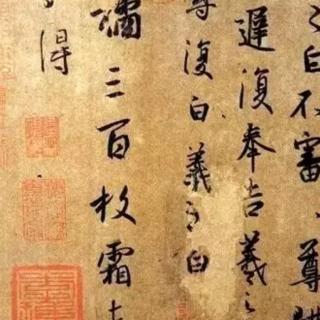 之白不審尊體
遲復奉告羲之
尋復白羲之白
橘三百枚霜未
得